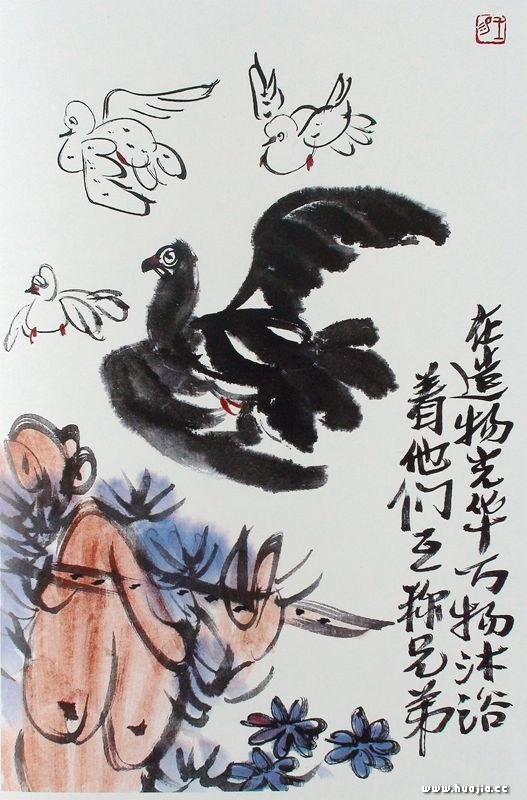 在造物光华万物沐浴
着他们互称兄弟
www.huajia.cc